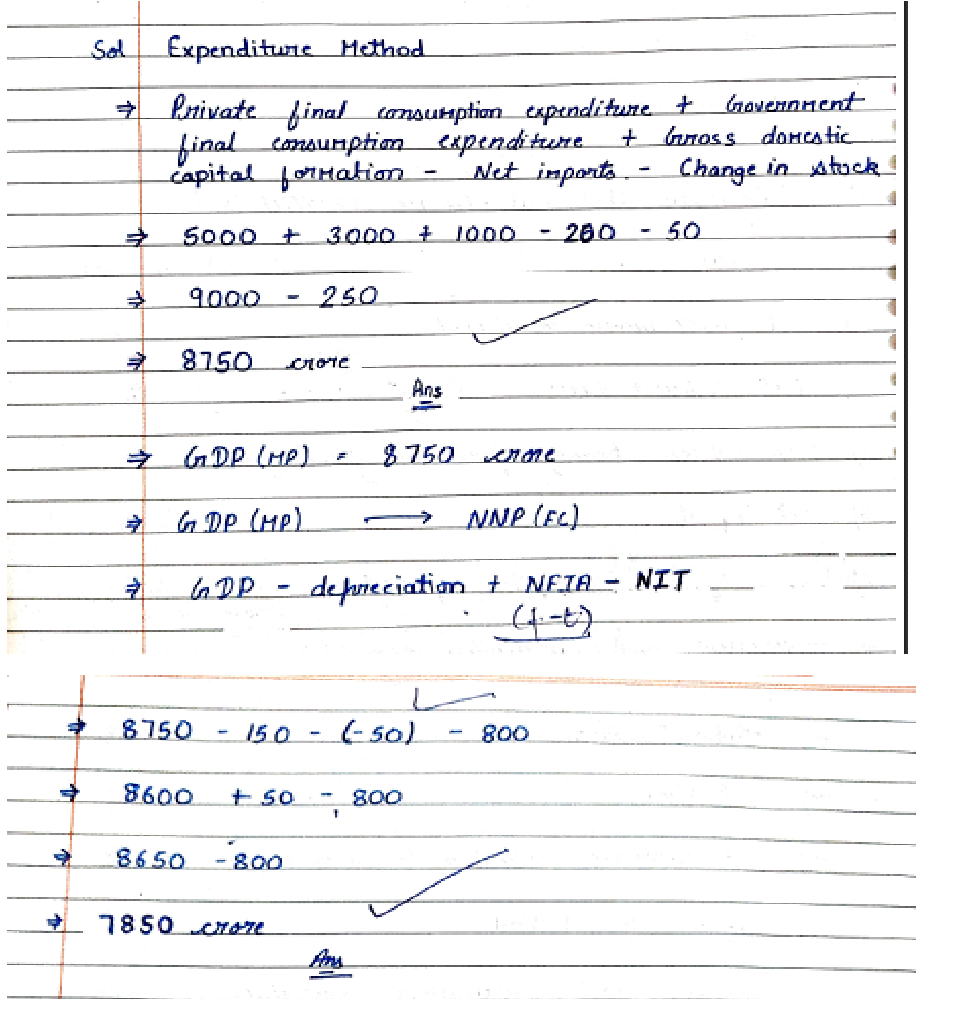 Sol Expenditure Method
⇒ Private final consumption expenditure + Government
final consumption expenditure + Gross domestic
capital formation - Net imports - Change in stock
⇒ 5000 + 3000 + 1000 - 200 - 50
⇒ 9000 - 250
⇒ 8750 crore
Ans
⇒ GDP (MP) = 8750 crore
⇒ GDP (MP) → NNP (FC)
⇒ GDP - depreciation + NFIA - NIT
(f-t)
⇒ 8750 - 150 - (-50) - 800
⇒ 8600 + 50 - 800
⇒ 8650 - 800
⇒ 7850 crore
Ans